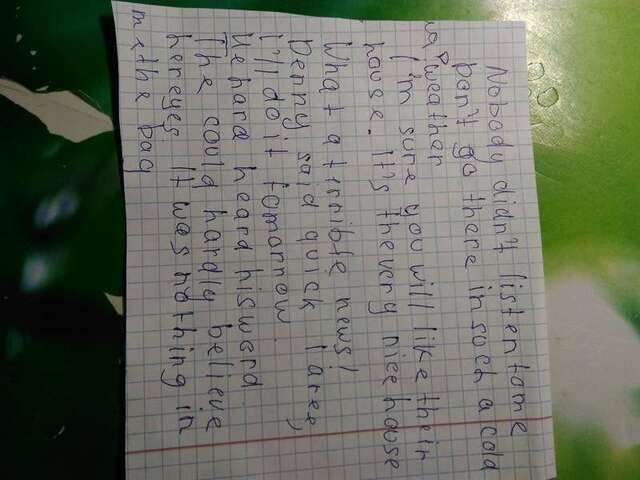 Nobody didn't listen to me
Don't go there in such a cold
weather
I'm sure you will like their
house. It's the very nice house
What a terrible news!
Denny said quick
I'll do it tomorrow.
He hard heard his word
The could hardly believe
her eyes It was nothing in
me the bag